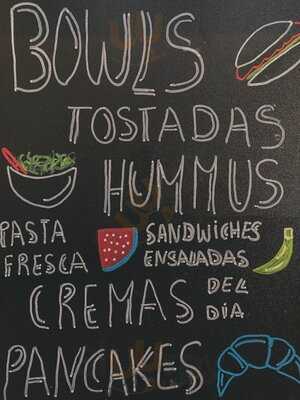 BOWLS
TOSTADAS
HUMMUS
PASTA FRESCA
SANDWICHES
ENSALADAS
CREMAS DEL DÍA
PANCAKES